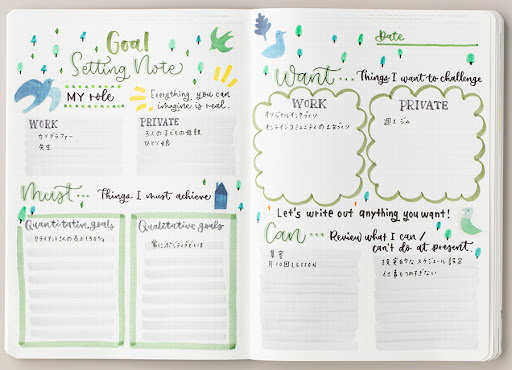 Goal
Setting Note
MY role
Everything you can
imagine is real.
WORK
カリグラファー
先生
PRIVATE
3人の子どもの母親
ひとり娘
Must...
Things I must achieve
Quantitative goals
クライアントさんの売上150%
Qualitative goals
常にポジティブでいる
Date
Want...
Things I want to challenge
WORK
オリジナルインクづくり
オンラインコミュニティの土台づくり
PRIVATE
週1ジム
Let's write out anything you want!
Can...
Review what I can /
can't do at present.
集客
月10回LESSON
現実的なスケジュール設定
仕事をつめすぎない